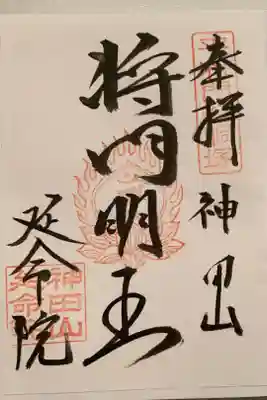 奉拝 神田山
将門明王
延命院
神田山
延命院